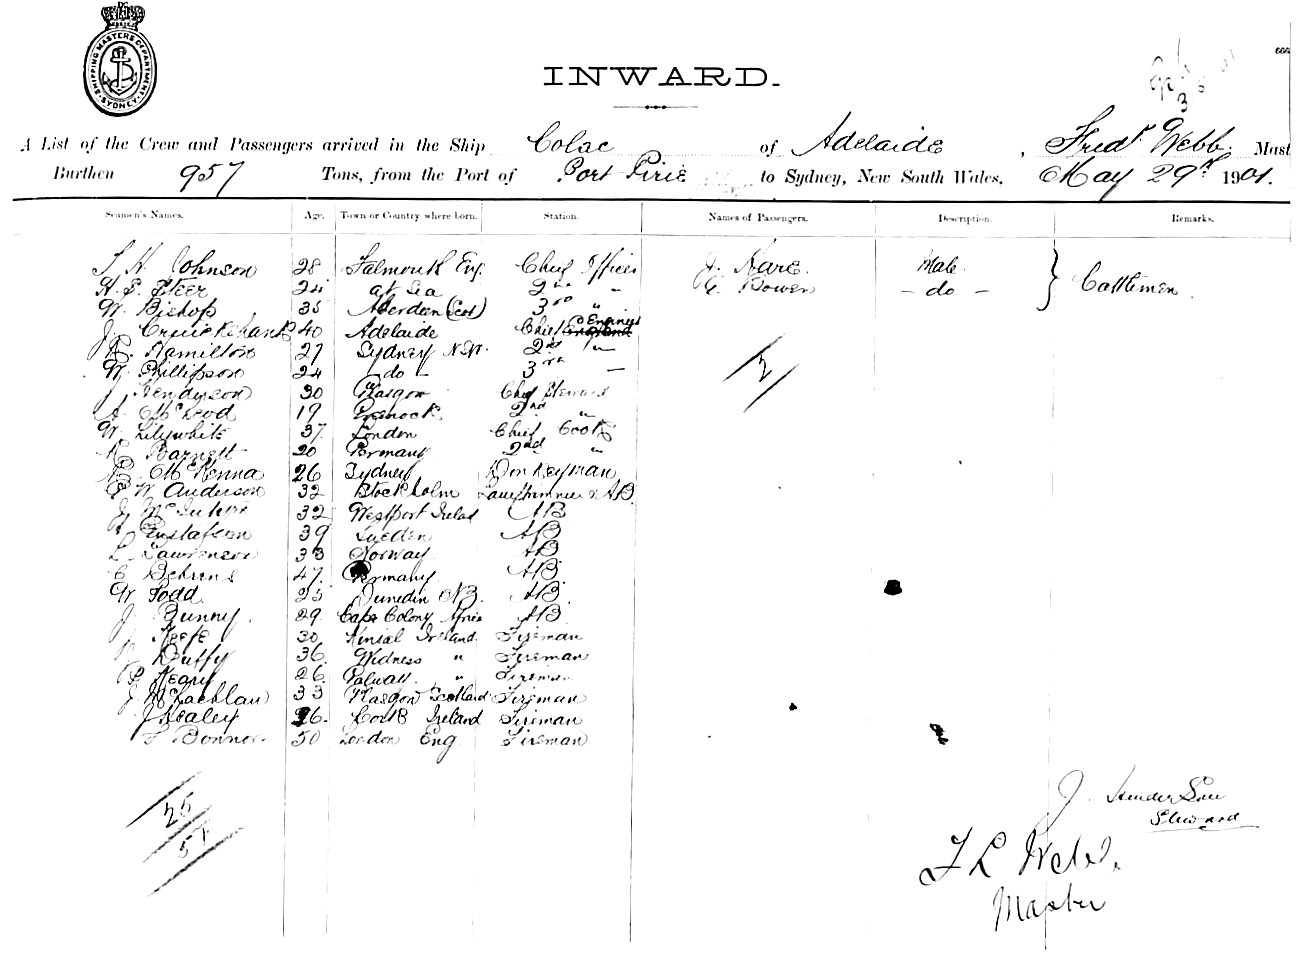 SHIPPING MASTERS DEPARTMENT SYDNEY
INWARD.
A List of the Crew and Passengers arrived in the Ship Colac of Adelaide, Fredk. Webb. Mast
Burthen 957 Tons, from the Port of Port Pirie to Sydney, New South Wales, May 29th 1901.
Seamen's Names. Age. Town or Country where born. Station. Names of Passengers. Description. Remarks.
Johnson 28 Falmouth Eng. Chief Officer J. Hare. Male Cattlemen.
H. E. Steer 24 at Sea 2nd " Bowen – do –
W. Bishop 35 Aberdeen (Scot) 3rd "
J. Cruickshank 40 Adelaide Chief Engineer
Hamilton 27 Sydney N.S.W. 2nd "
W. Phillipson 24 do – 3rd –
J. Henderson 30 Glasgow Chief Steward
A. McLeod 19 Greenock 2nd "
W. Lilywhite 37 London Chief Cook
Barnett 20 Germany 2nd "
McKenna 26 Sydney Donkeyman
W. Anderson 32 Stockholm Lamptrimmer & AB.
32 Westport Ireland AB
Gustafson 39 Sweden AB
L. Lawrenson 33 Norway AB
C. Behrens 47 Germany AB.
W. Todd 25 Dunedin N.Z. AB.
J. Bunny 29 Cape Colony Africa AB
Keefe 30 Kinsal Ireland Fireman
Duffy 36 Widness " Fireman
P. Neary 26 Galway " Fireman
J. McLachlan 33 Glasgow Scotland Fireman
J. Healey 26 Cork Ireland Fireman
Connor 50 London Eng Fireman
2
25
57
J. Henderson
Steward
F L Webb.
Master